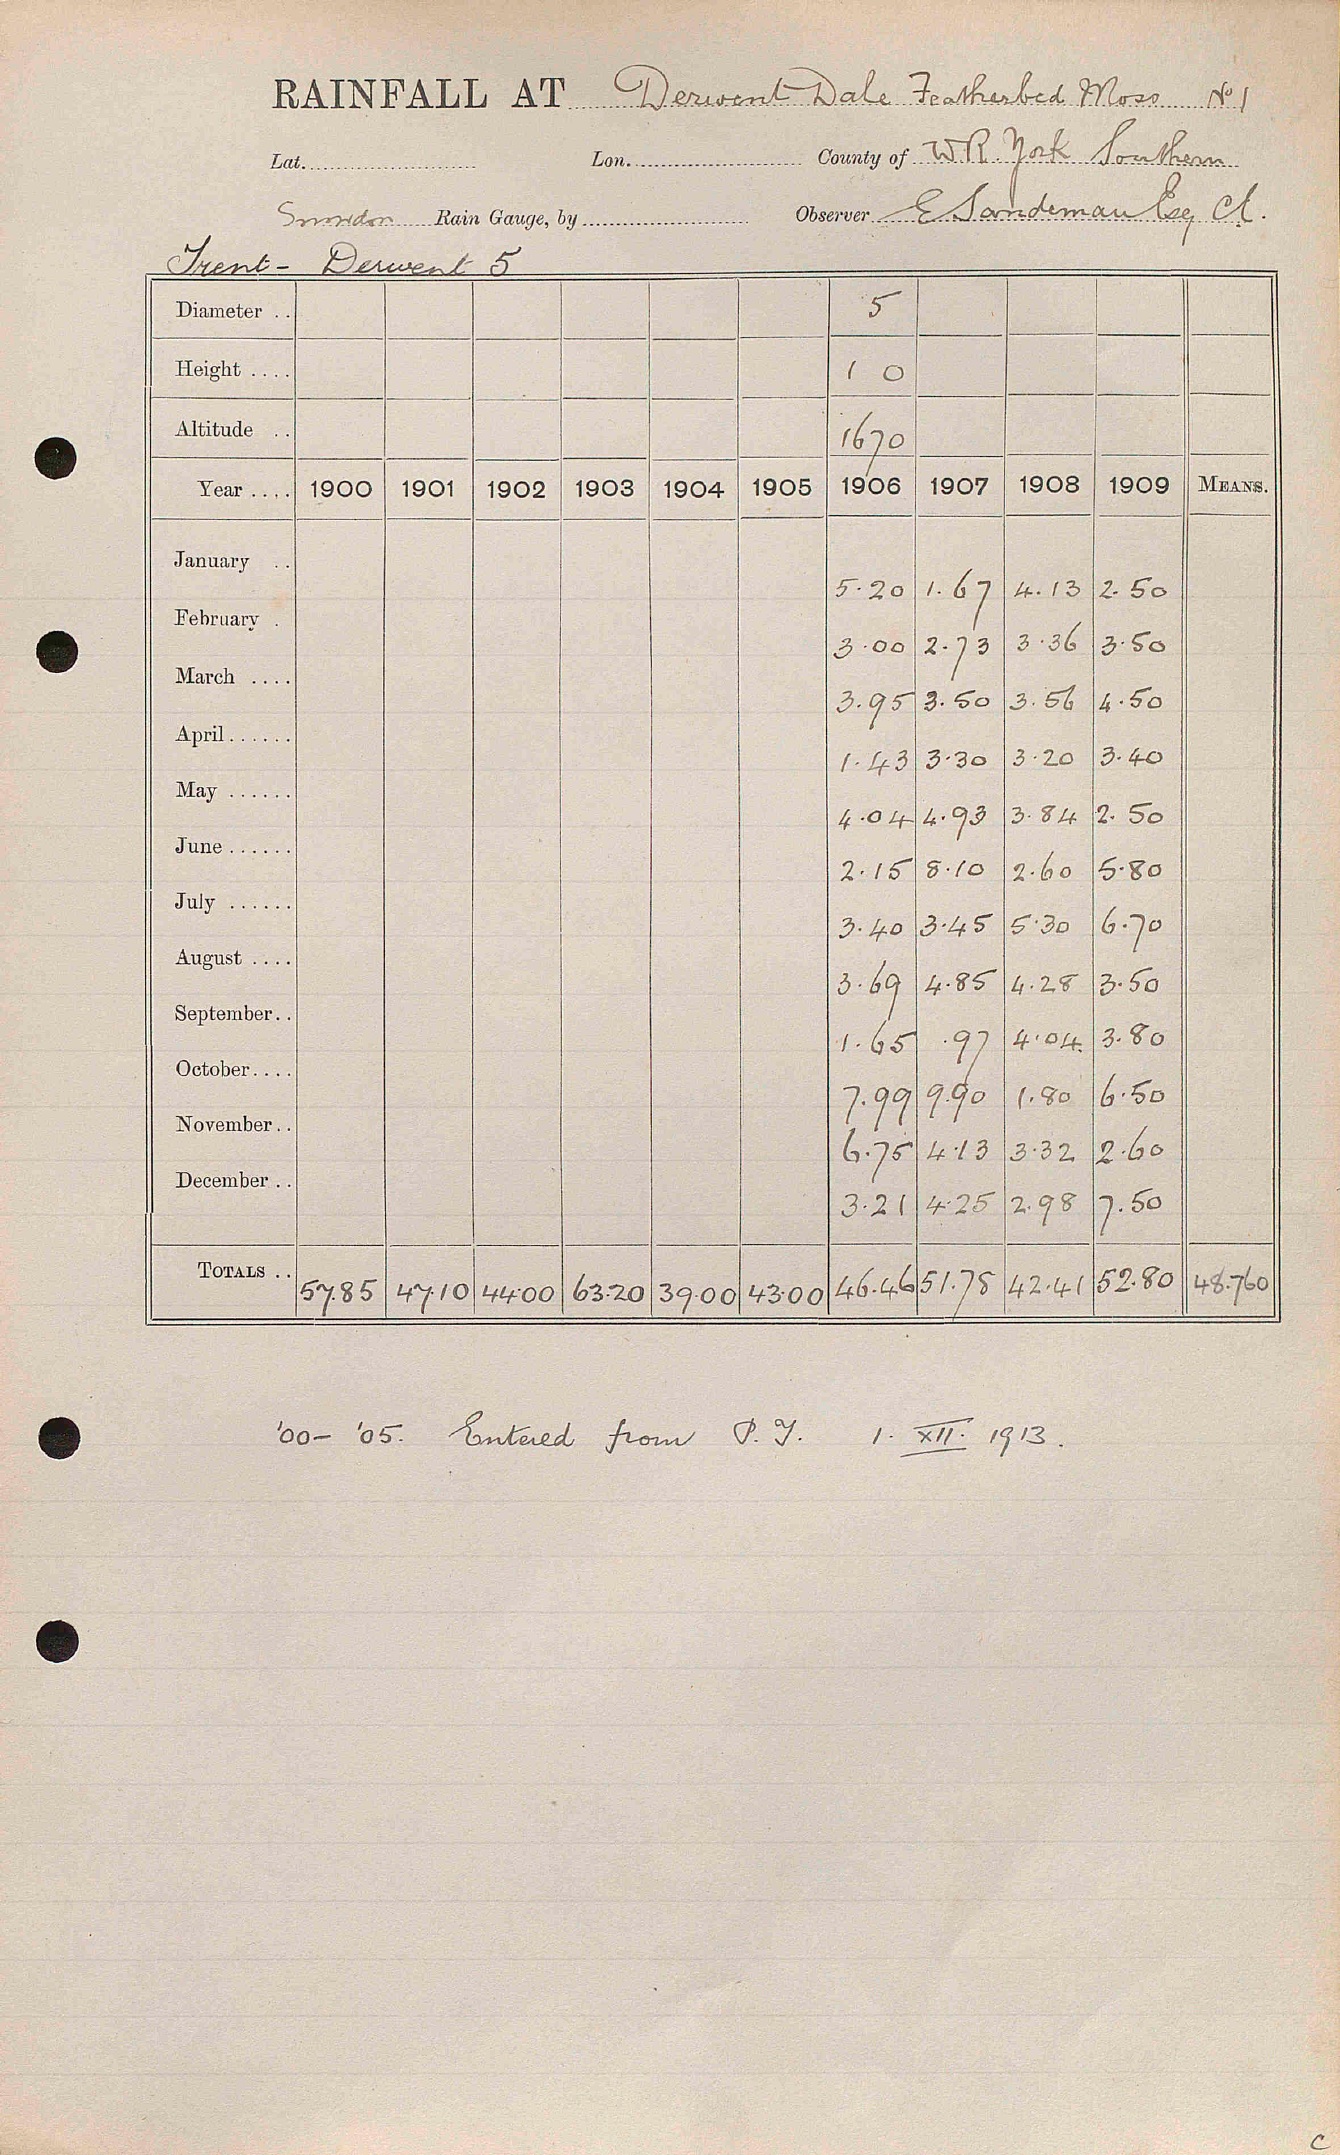 RAINFALL AT Derwent Dale Featherbed Moss No 1
Lat. Lon. County of W R York Southern
Snowdon Rain Gauge, by Observer E Sandeman Esq CE.
Trent - Derwent 5
Diameter .. 5
Height .... 1 0
Altitude .. 1670
Year .... 1900 1901 1902 1903 1904 1905 1906 1907 1908 1909 MEANS.
January .. 5.20 1.67 4.13 2.50
February . 3.00 2.73 3.36 3.50
March .... 3.95 3.50 3.56 4.50
April ...... 1.43 3.30 3.20 3.40
May ...... 4.04 4.93 3.84 2.50
June ...... 2.15 8.10 2.60 5.80
July ...... 3.40 3.45 5.30 6.70
August .... 3.69 4.85 4.28 3.50
September .. 1.65 .97 4.04 3.80
October .... 7.99 9.90 1.80 6.50
November .. 6.75 4.13 3.32 2.60
December .. 3.21 4.25 2.98 7.50
TOTALS .. 57.85 47.10 44.00 63.20 39.00 43.00 46.46 51.78 42.41 52.80 48.760
'00- '05. Entered from P. Y. 1. XII. 1913.
C